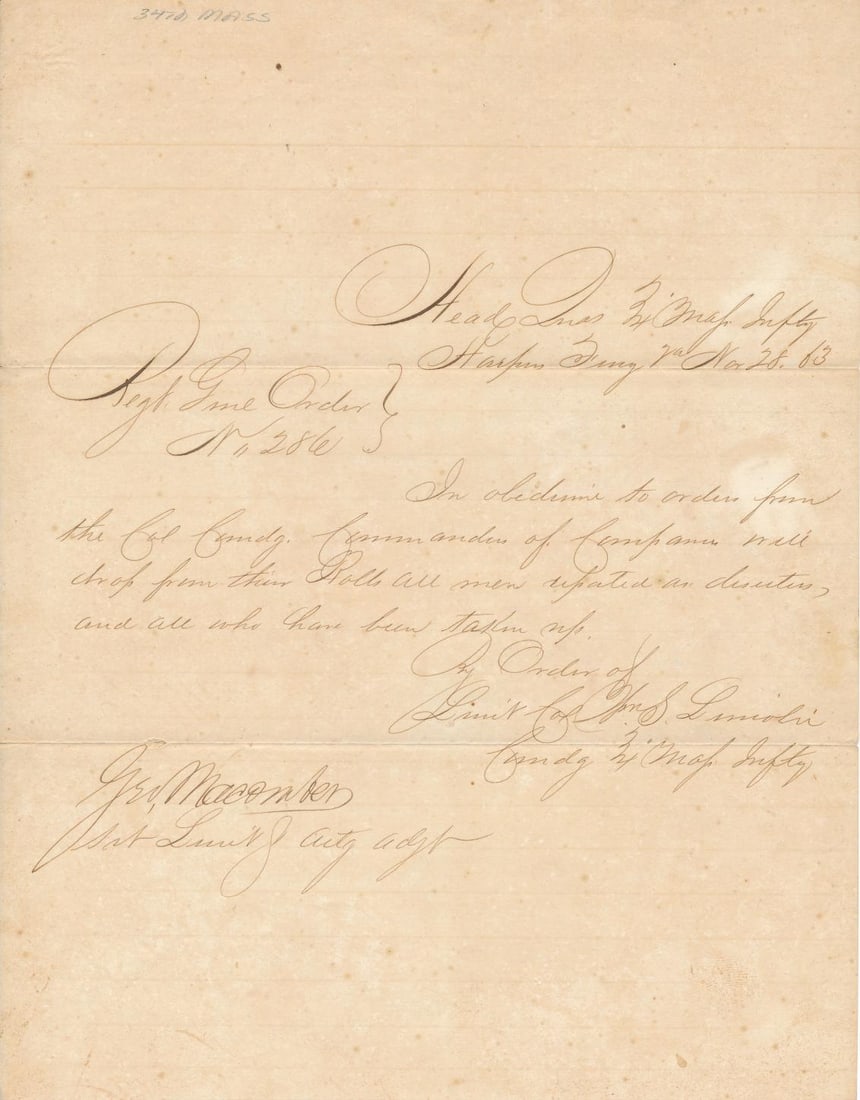 34th MASS
Head Qurs 34" Mass. Infty
Harpers Ferry Va Nov 28. 63
Regt. Genl Order }
No 286 }
In obedience to orders from
the Col Comdg. Commanders of Companies will
drop from their Rolls all men reported as deserters,
and all who have been taken up.
By Order of
Lieut Col Wm. S. Lincoln
Comdg 34" Mass. Infty
Geo, Macomber
1st Lieut & Actg adjt